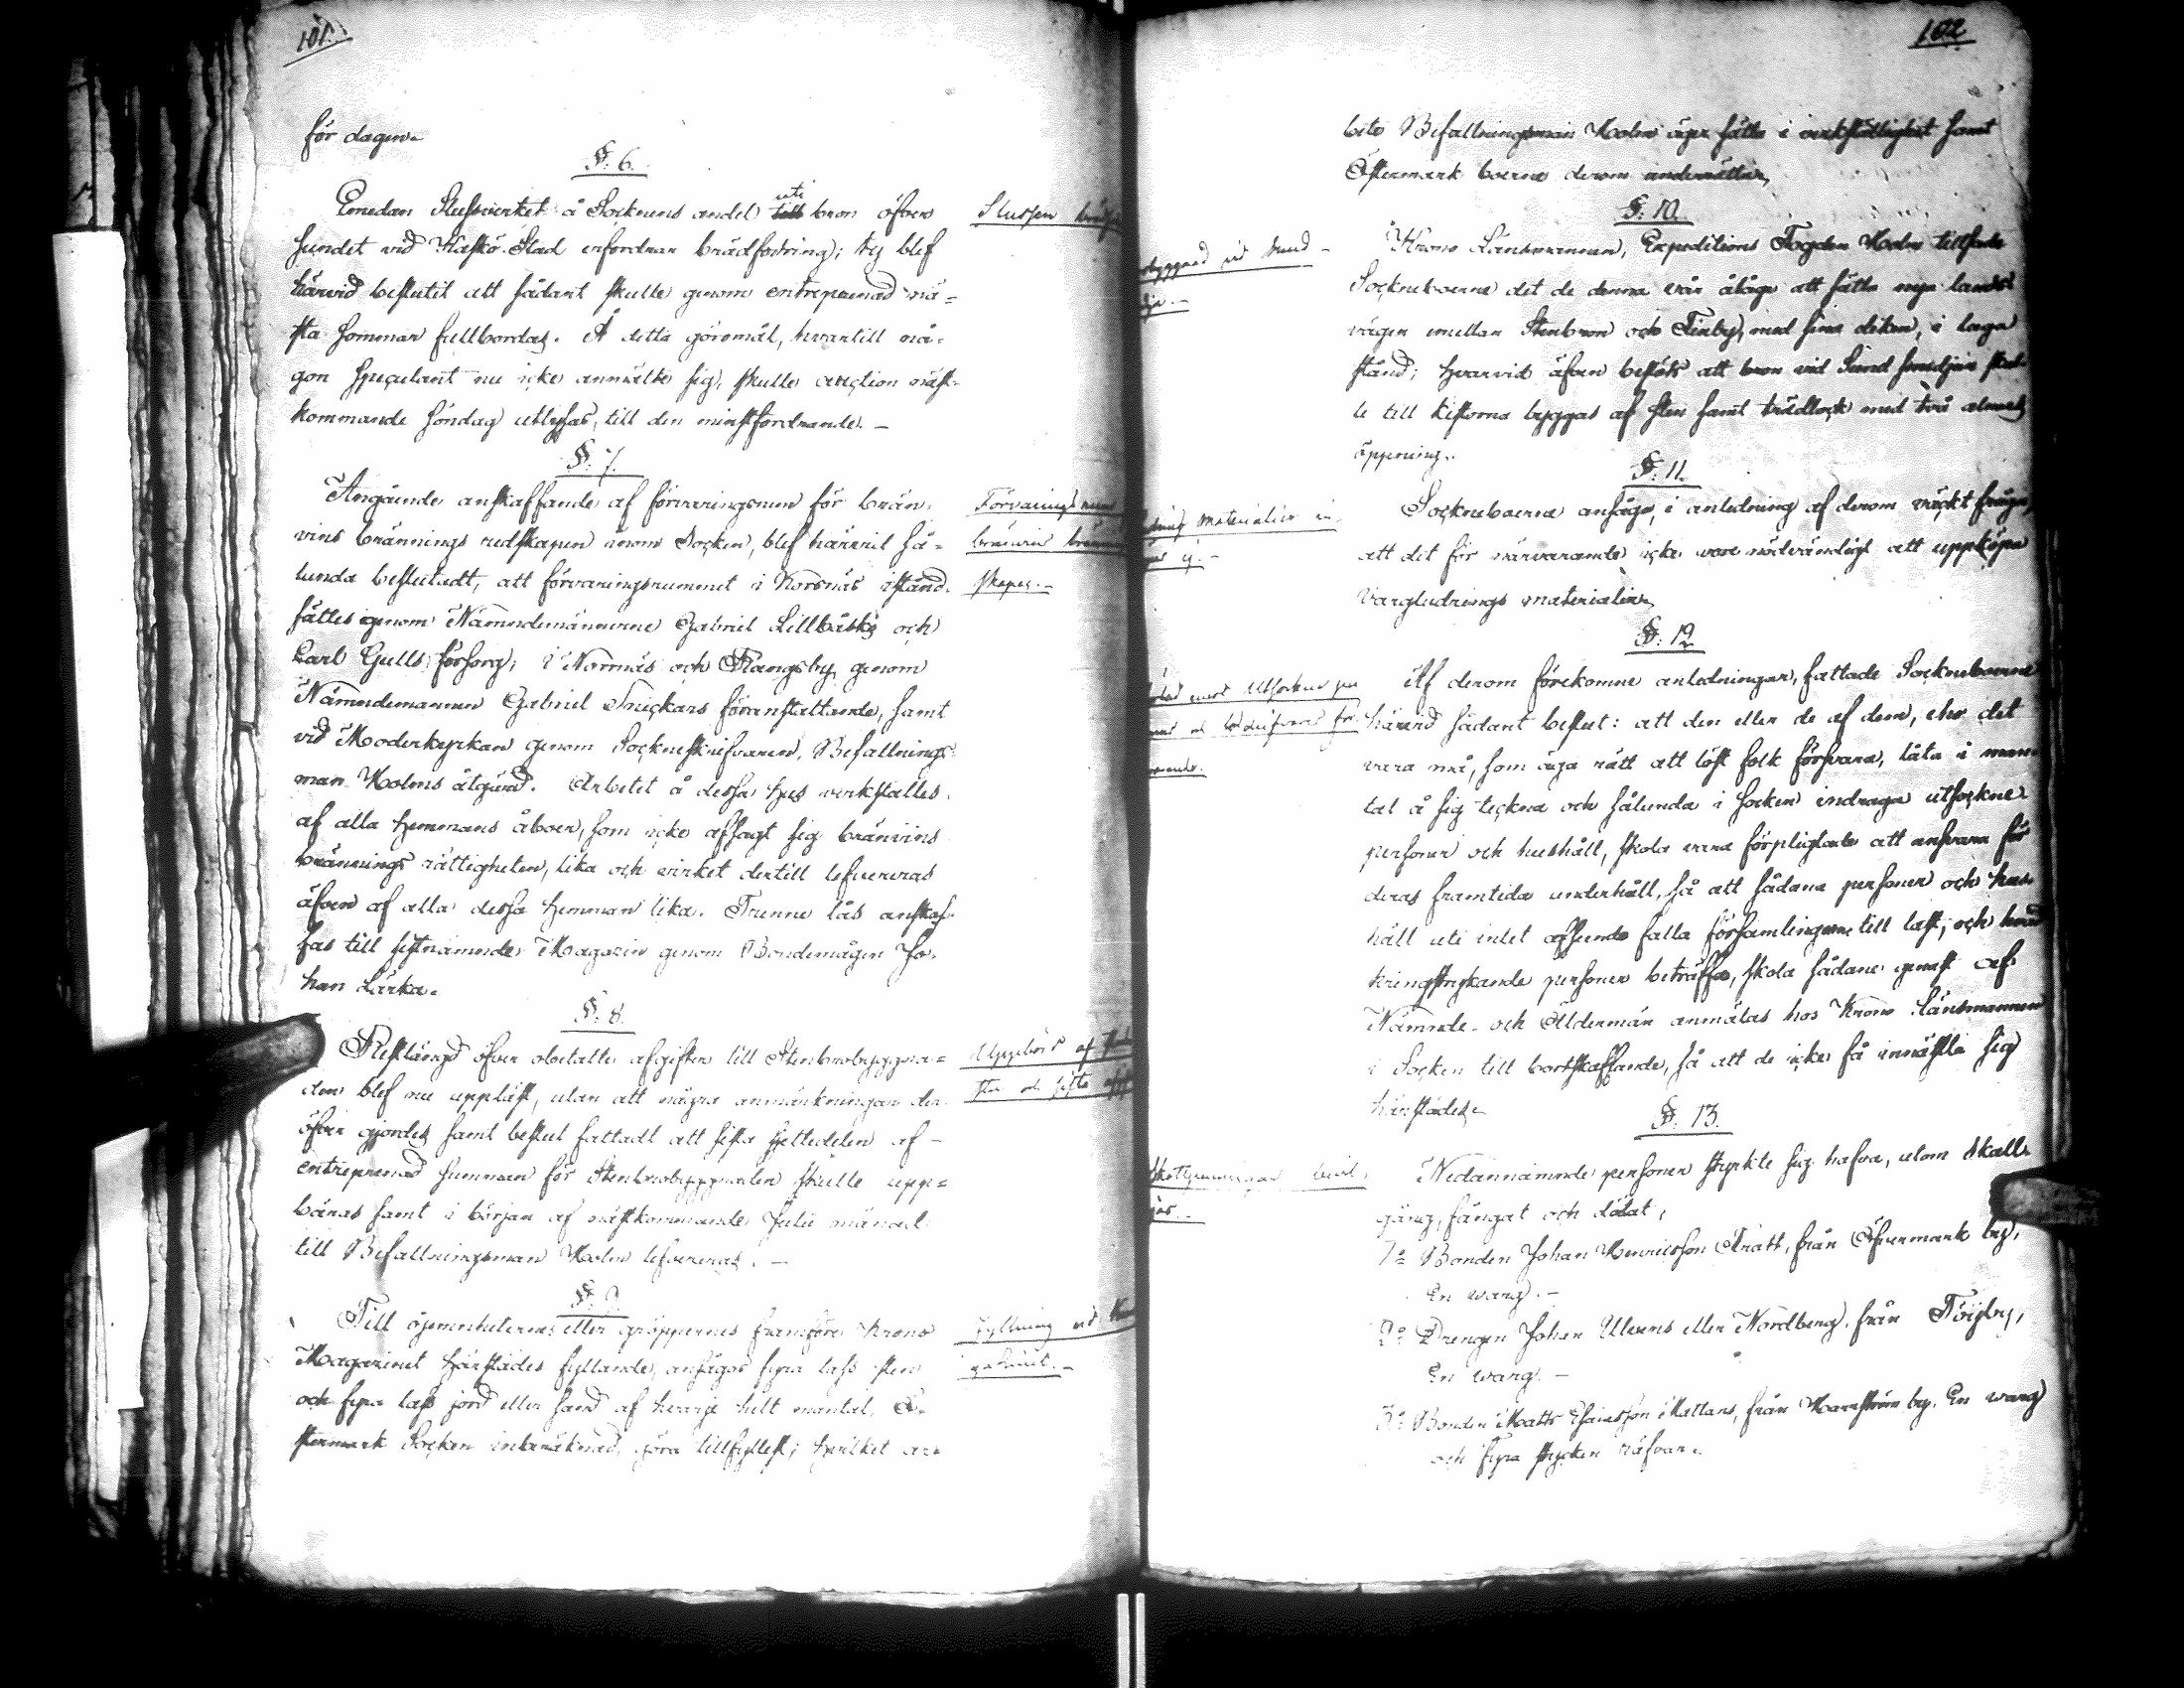 101.
för dagen.
§: 6.
Emedan Slussverket å Socknens andel uti till bron öfver
sundet vid Kaskö Stad erfordrar brädfodring; ty blef
härvid beslutit att sådant skulle genom entreprenad nä=
sta sommar fullbordas. Å detta göromål, hvartill nå=
gon speculant nu icke anmälte sig, skulle auction näst=
kommande söndag utlysas, till den minstfordrande. —
Slussen
§: 7.
Angående anskaffande af förvaringsrum för brän=
vins brännings redskapen inom Socken, blef härvid så=
lunda beslutadt, att förvaringsrummet i Korsnäs istånd=
sättes genom Nämndemännerne Gabriel Lillbåsks och
Carl Gulls försorg; i Norrnäs och Rangsby genom
Nämndemannen Gabriel Snickars föranstaltande, samt
vid Moderkyrkan genom Socknеskrifvaren, Befallnings=
man Holms åtgärd. Arbetet å dessa hus verkställes
af alla hemmans åboer, som icke afsagt sig bränvins
brännings rättigheten, lika och virket dertill lefvereras
äfven af alla dessa hemman lika. Trenne lås anskaf=
fas till sistnämnde Magazin genom Bondemågen Jo=
han Lärka.
Förvarings rum
brännvin
skaper. —
§: 8.
Restlängd öfver obetalte afgifter till Stenbrobyggna=
den blef nu uppläst, utan att några anmärkningar der=
öfver gjordes samt beslut fattadt att sista fjettedelen af
entreprenad summan för Stenbrobyggnaden skulle upp=
bäras samt i början af nästkommande Julii månad
till Befallningsman Holm lefvereras. —
Uppbörd af
sta och sista
§: 9.
Till ojemnheternes eller groppernes framföre Krono
Magazinet härstädes fyllande, ansågos fyra lass sten
och fyra lass jord eller sand af hvarje helt mantal, Ö=
stermark Socken inberäknad, göra tillfyllest; hvilket ar=
Fyllning vid
102
bete Befallningsman Holm äger sätta i verkställighet samt
Östermark boerne derom underrättas,
§: 10.
Krono Länsmannen, Expeditions Fogden Holm tillsade
Socknеboerne det de denna vår åläge att sätta nya lands=
vägen emellan Stenbron och Finby, med sine diken, i laga
stånd; hvarvid äfven beslöts att bron vid Sund smedjan skul=
le till kistorna byggas af sten samt brädlock med två alnars
öppning.
byggnad vid Sund —
dja. —
§: 11.
Socknеboerne ansågo, i anledning af derom väckt fråga,
att det för närvarande icke vore nödvändigt att uppköpa
Vargledrings materialier,
materialier in
ej. —
§: 12
Af derom förekomne anledningar, fattade Socknеboerne
härvid sådant beslut: att den eller de af dem, eho det
vara må, som äga rätt att löst folk försvara, låta i man=
tal å sig teckna och sålunda i Socken indraga utsockne
personer och hushåll, skola vara förpligtade att ansvara för
deras framtida underhåll, så att sådana personer och hus=
håll uti intet afseende falla församlingen till last; och hvad
kringstrykande personer beträffa, skola sådane genast af
Nämnde- och Ålderman anmälas hos Krono Länsmannen
i Socken till bortskaffande, så att de icke få innästla sig
härstädes. —
§: 13.
Nedannämnde personer styrkte sig hafva, utom skall=
gång, fångat och dödat;
1:o Bonden Johan Henricsson Träsk, från Öfvermark by,
En warg. —
2:o Drengen Johan Ulvens eller Nordberg, från Töjby,
En warg. —
3:o Bonden Matts Esaiasson Mattans, från Harrström by, En warg
och fyra stycken räfvar.